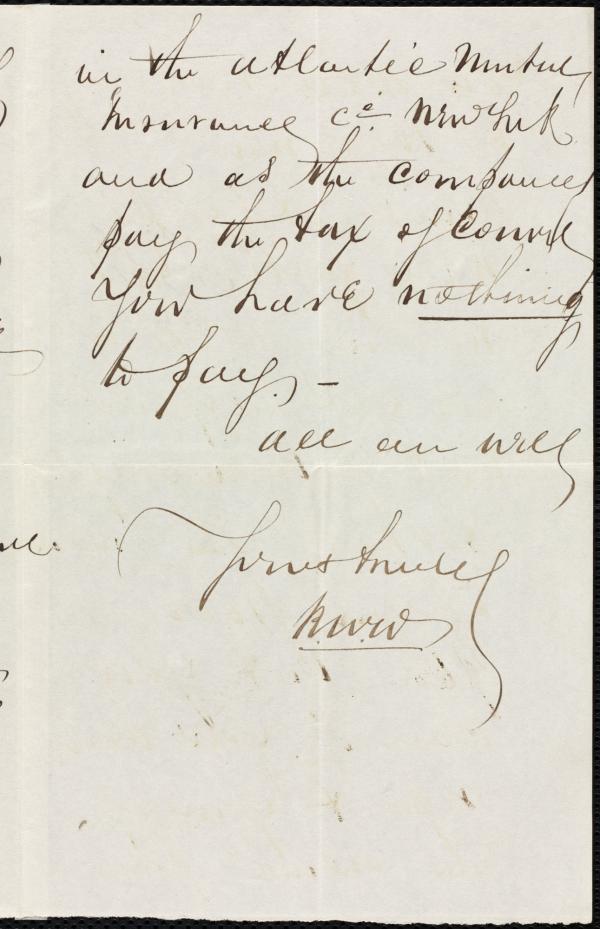 in the Atlantic Mutual
Insurance Co. New York
and as the company
pay the tax of course
you have nothing
to pay. –
all are well
Yours truly